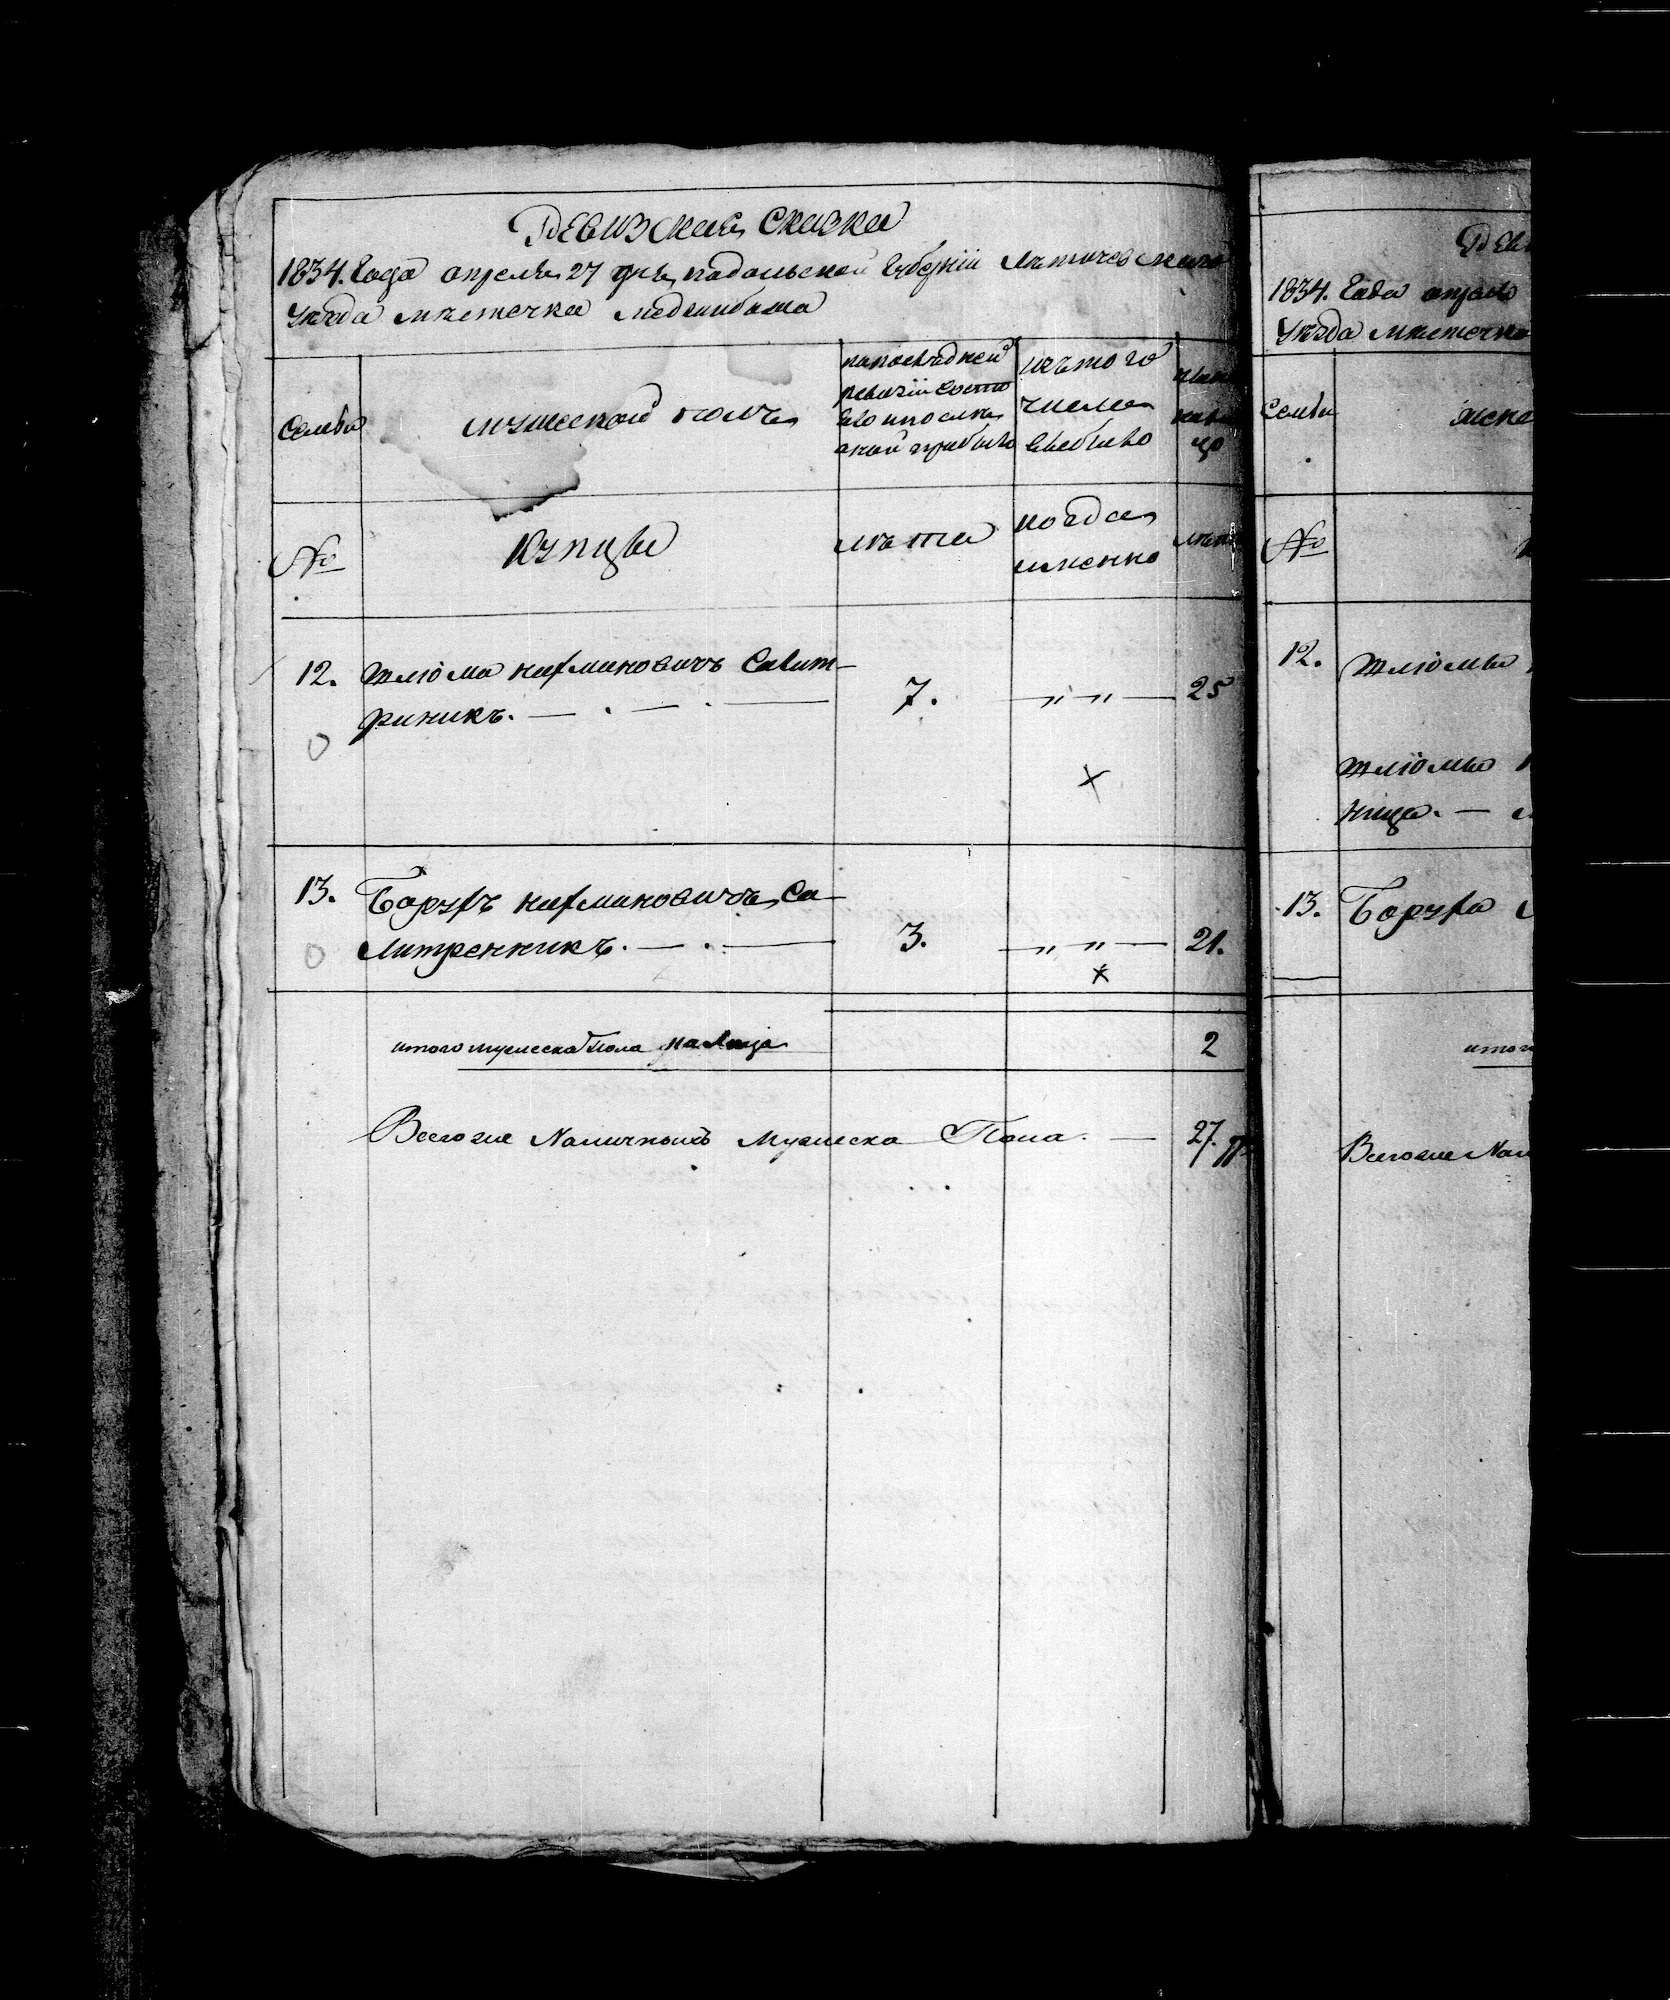 Ревизская сказка
1834. Года апреля 27 дня подольской Губернїи Летичевскаго
уезда местечка меджибожа
Семьи
мужеской полъ
по последней
ревизїи состо
яло и после
оной прибыло
изъ того
числа
выбыло
ныне
на
ли
цо
№
Купцы
лета
когда
именно
лета
12. Шлїома нахмановичъ Салит–
риникъ. — . — . — 7. — „ „ — 25
13. Борухъ нахмановичъ Са–
литренникъ. — . — 3. — „ „ — 21.
итого мужеска пола на лицо 2
Всего же Наличныхъ Мужеска Пола. — 27.
Реви
1834. Года апреля
уезда местечка
Семьи
женс
№
12. Шлїомы
Шлїомы
ница. —
13. Боруха
итого
Всего же Нал